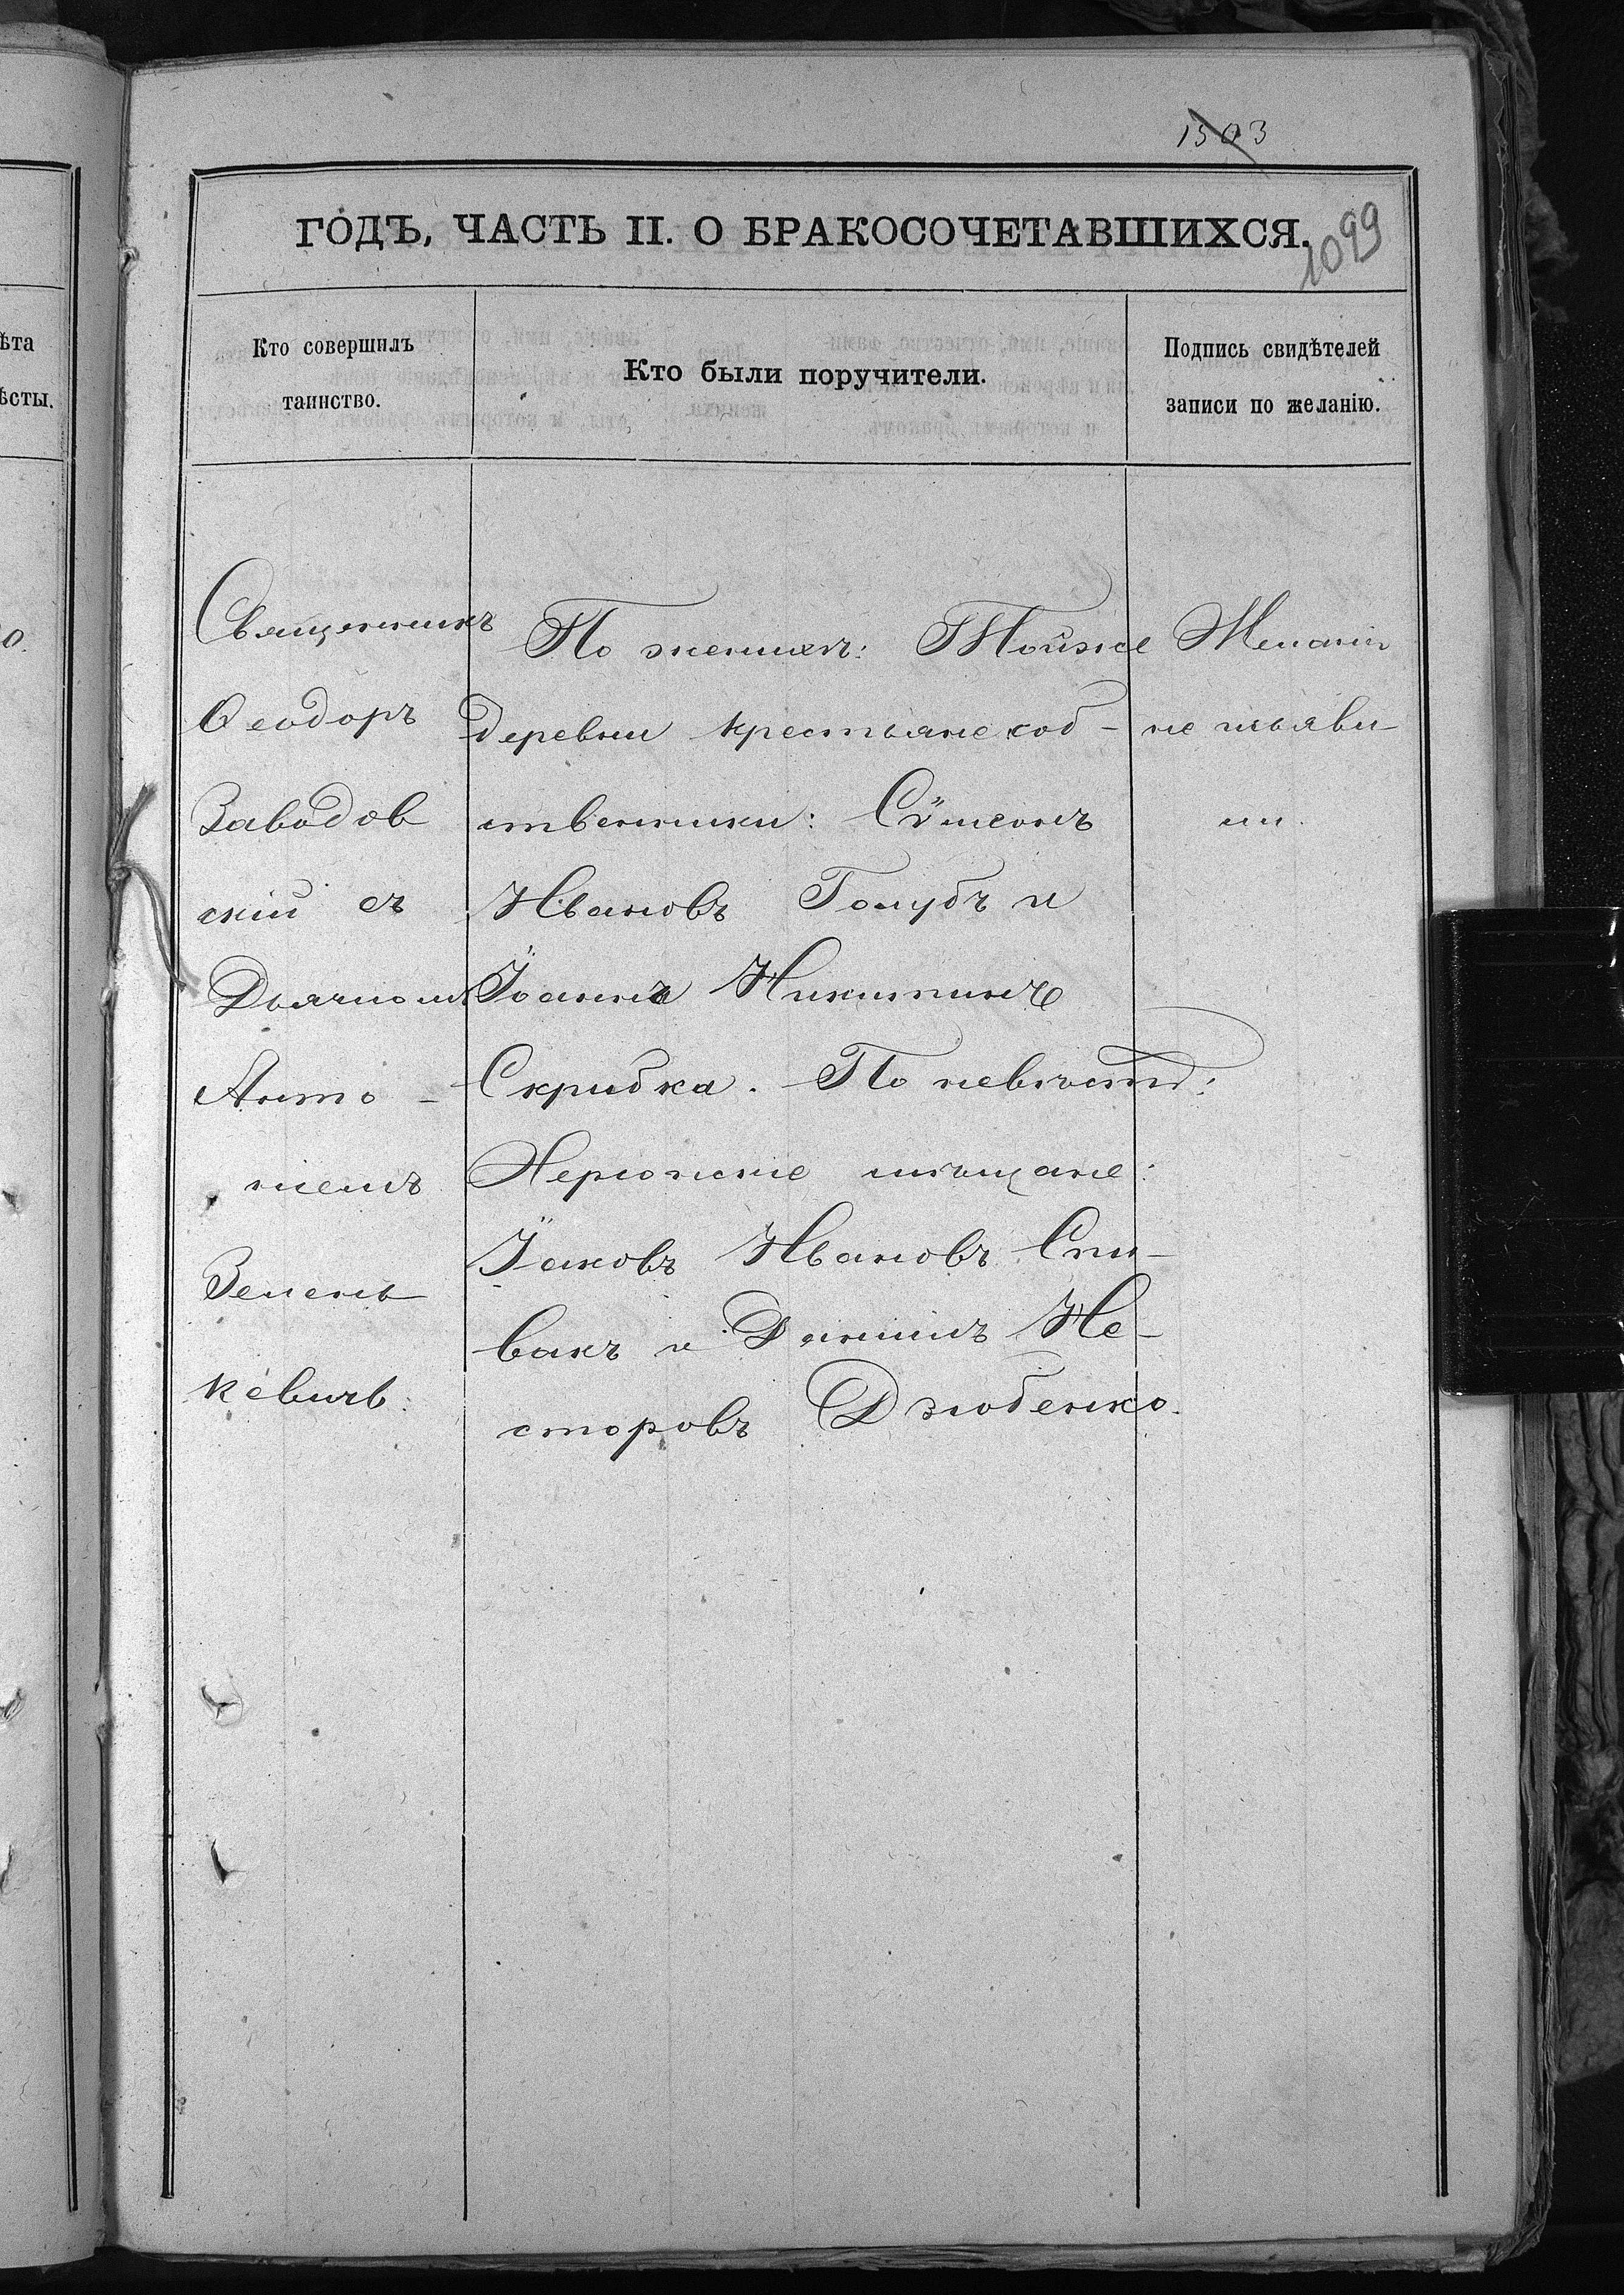 1503
ГОДЪ, ЧАСТЬ II. О БРАКОСОЧЕТАВШИХСЯ.
1099
ѣта
ѣсты.
Кто совершилъ
таинство.
Кто были поручители.
Подпись свидѣтелей
записи по желанію.
Священникъ
Ѳеодоръ
Заводов
скій съ
Дьячком
Анто-
ніемъ
Зелень
кевичъ.
По женихѣ: Тойже
деревни крестьяне соб-
ственники: Сѵмеонъ
Ивановъ Голубъ и
Іоаннъ Никитинъ
Скрибка. По невѣстѣ:
Херсонскіе мѣщане:
Іаковъ Ивановъ Спи-
вакъ и Даніилъ Не-
сторовъ Дзюбенко.
Желанія
не изъяви-
ли.